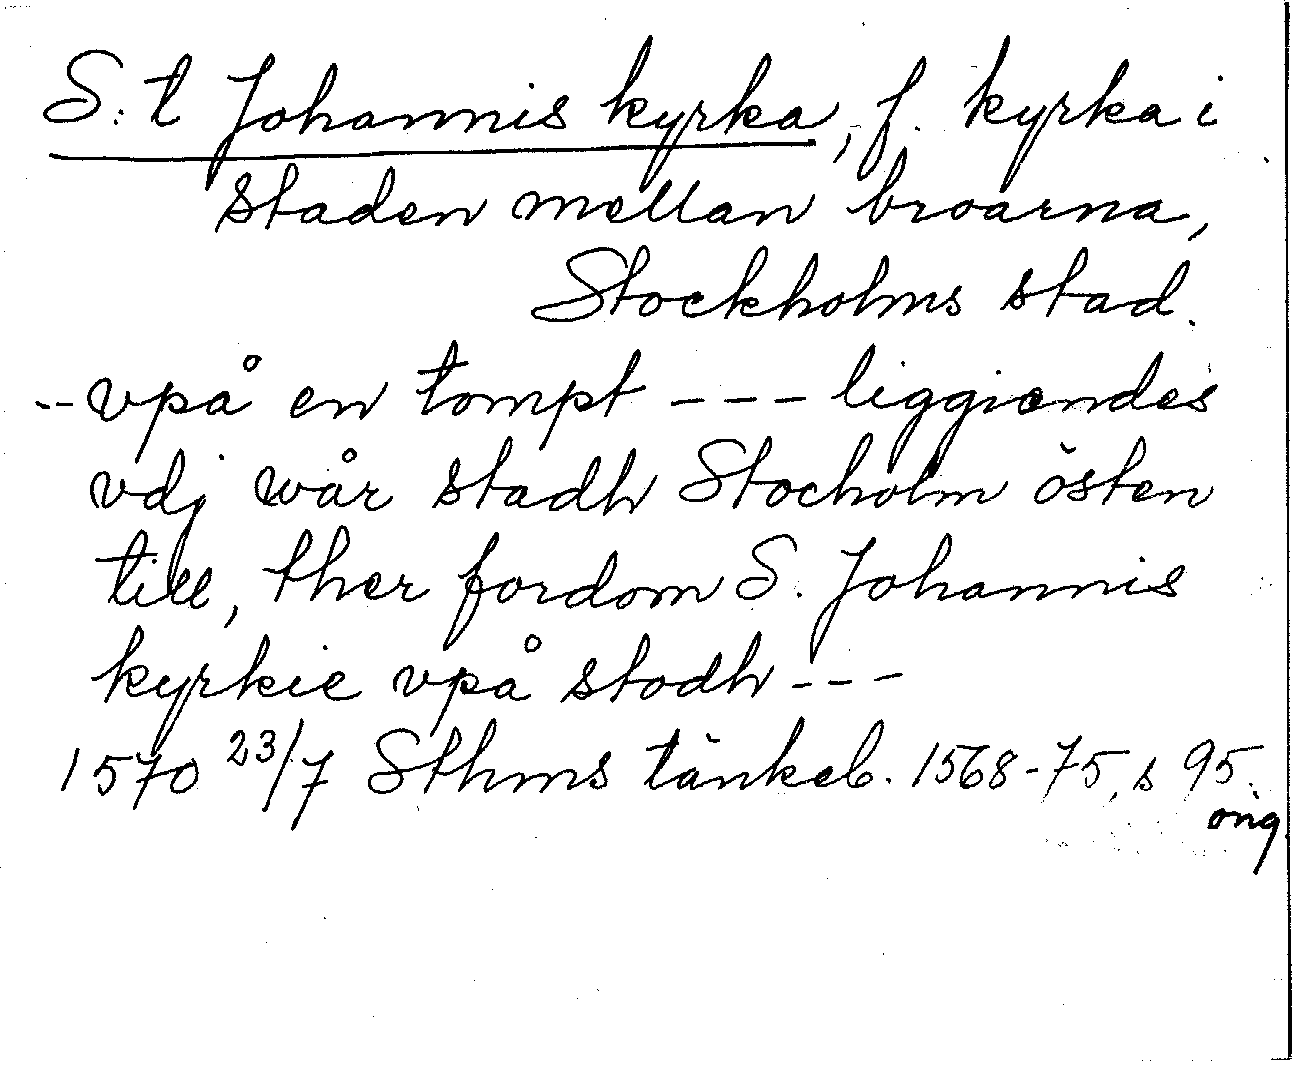 S:t Johannis kyrka, f. kyrka i
staden mellan broarna,
Stockholms stad.
-- vpå en tompt --- liggiendes
vdj wår stadh Stocholm östen
till, ther fordom S. Johannis
kyrkie vpå stodh ---
1570 23/7 Sthms tänkeb. 1568-75, s 95.
orig.